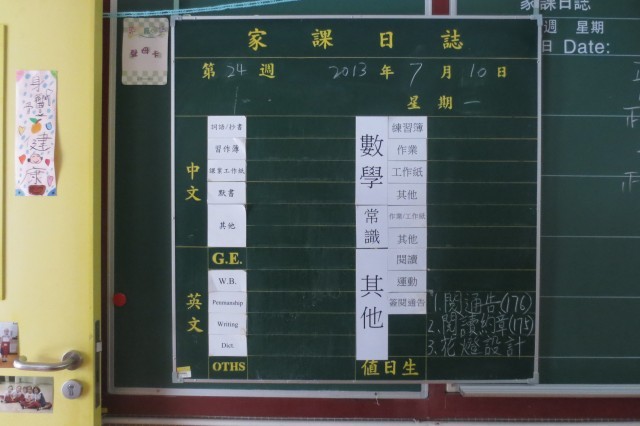 家課日誌
第24週 2013年7月10日
星期一
中文
詞語/抄書
習作簿
默書
其他
G.E.
英文
W.B.
Penmanship
Writing
Dict.
OTHS
數學
練習簿
作業
工作紙
其他
常識
作業/工作紙
其他
其他
閱讀
運動
簽閱通告
值日生
1.閱通告(176)
2.閱讀約章(175)
3.花燈設計
身體健康
家課日誌
週 星期
日 Date: